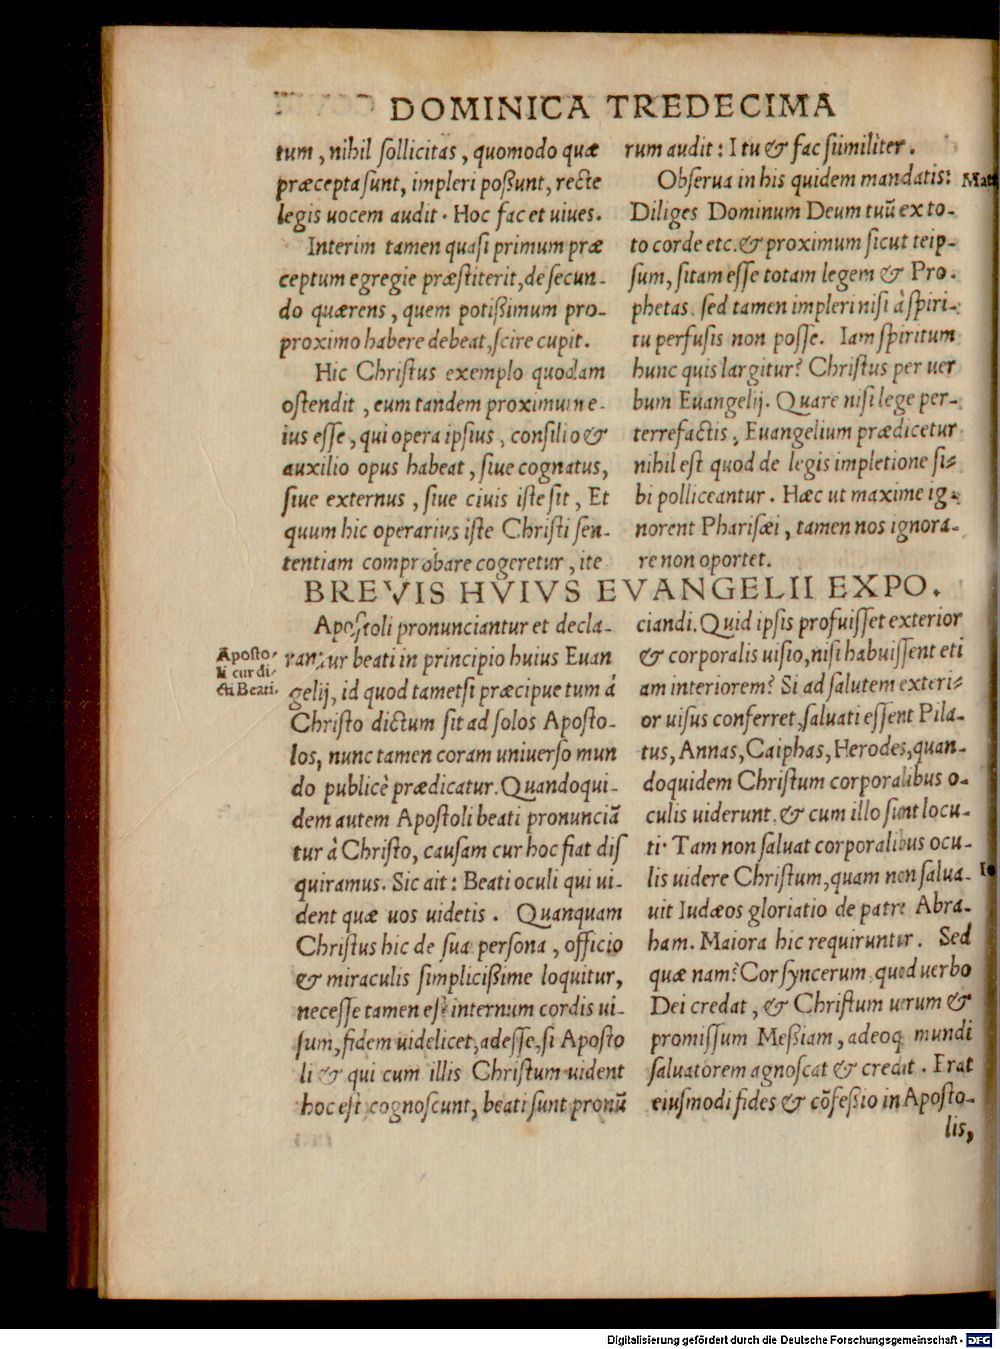 DOMINICA TREDECIMA
tum, nihil sollicitas, quomodo quæ
præcepta sunt, impleri poßunt, recte
legis uocem audit. Hoc fac et uiues.
Interim tamen quasi primum præ
ceptum egregie præstiterit, de secun-
do quærens, quem potißimum pro-
proximo habere debeat, scire cupit.
Hic Christus exemplo quodam
ostendit, eum tandem proximum e-
ius esse, qui opera ipsius, consilio &
auxilio opus habeat, siue cognatus,
siue externus, siue ciuis iste sit, Et
quum hic operarius iste Christi sen-
tentiam comprobare cogeretur, ite
rum audit: I tu & fac similiter.
Obserua in his quidem mandatis:
Diliges Dominum Deum tuũ ex to-
to corde etc. & proximum sicut teip-
sum, sitam esse totam legem & Pro-
phetas, sed tamen impleri nisi à spiri-
tu perfusis non posse. Iam spiritum
hunc quis largitur? Christus per uer
bum Euangelij. Quare nisi lege per-
terrefactis, Euangelium prædicetur
nihil est quod de legis impletione si-
bi polliceantur. Hæc ut maxime ig-
norent Pharisæi, tamen nos ignora-
re non oportet.
Mat
BREVIS HVIVS EVANGELII EXPO.
Apostoli pronunciantur et decla-
rantur beati in principio huius Euan
gelij, id quod tametsi præcipue tum á
Christo dictum sit ad solos Aposto-
los, nunc tamen coram uniuerso mun
do publicè prædicatur. Quandoqui-
dem autem Apostoli beati pronunciã
tur â Christo, causam cur hoc fiat dis
quiramus. Sic ait: Beati oculi qui ui-
dent quæ uos uidetis. Quanquam
Christus hic de sua persona, officio
& miraculis simplicißime loquitur,
necesse tamen est internum cordis ui-
sum, fidem uidelicet, adesse, si Aposto
li & qui cum illis Christum uident
hoc est cognoscunt, beati sunt pronũ
Aposto-
li cur di-
cti Beati.
ciandi. Quid ipsis profuisset exterior
& corporalis uisio, nisi habuissent eti
am interiorem? Si ad salutem exteri-
or uisus conferret, saluati essent Pila-
tus, Annas, Caiphas, Herodes, quan-
doquidem Christum corporalibus o-
culis uiderunt, & cum illo sunt locu-
ti. Tam non saluat corporalibus ocu-
lis uidere Christum, quam non salua-
uit Iudæos gloriatio de patre Abra-
ham. Maiora hic requiruntur. Sed
quæ nam? Cor syncerum quod uerbo
Dei credat, & Christum uerum &
promissum Meßiam, adeoq mundi
saluatorem agnoscat & credit. Erat
eiusmodi fides & cõfeßio in Aposto-
lis,
Digitalisierung gefördert durch die Deutsche Forschungsgemeinschaft - DFG